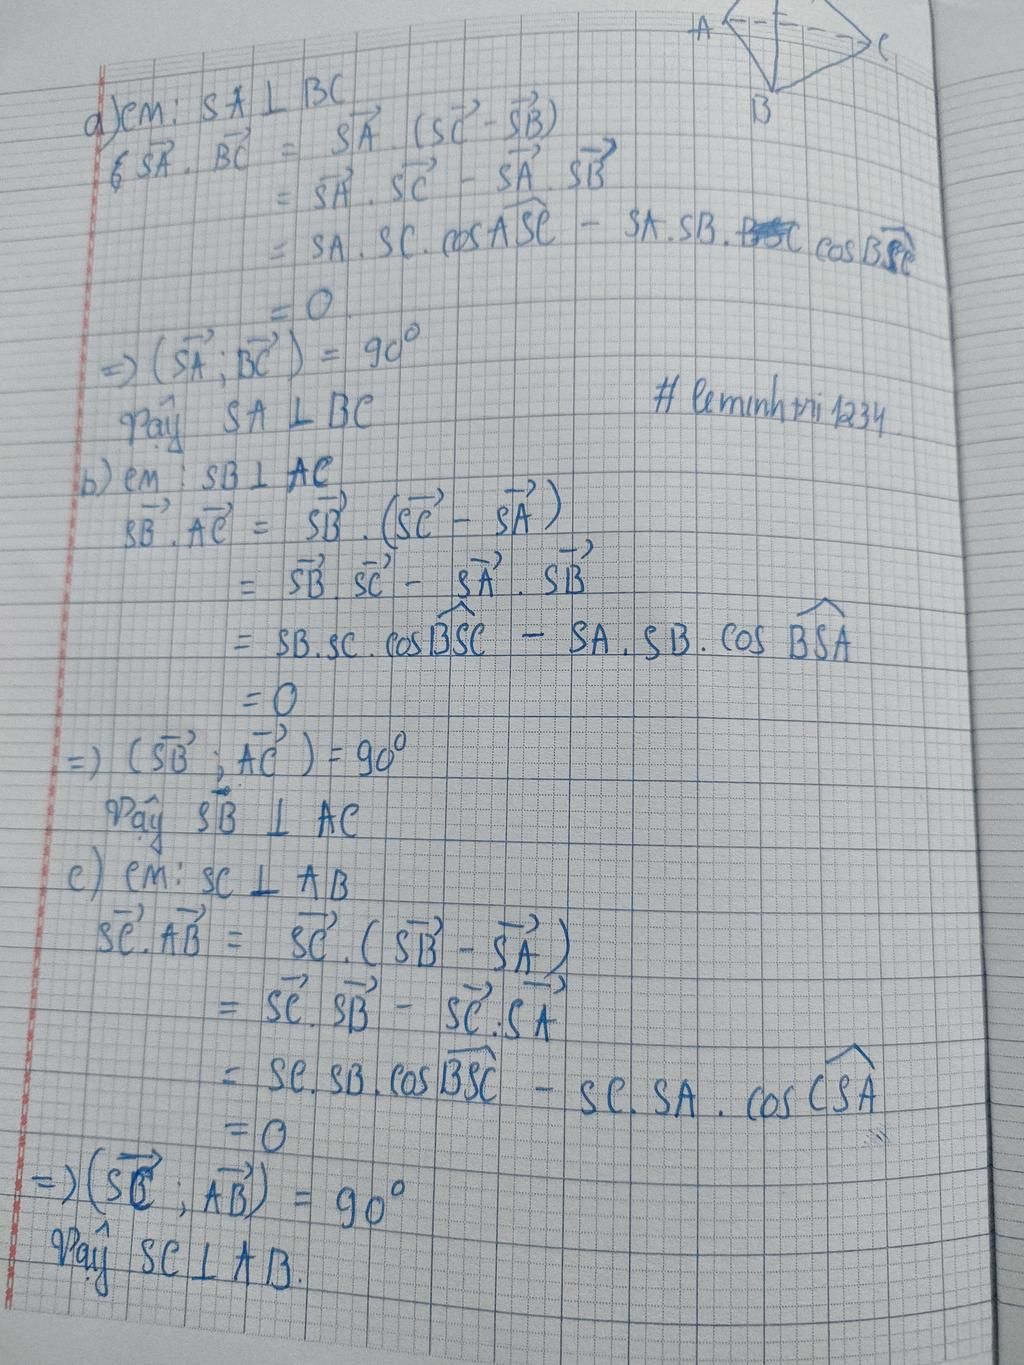 A
C
B
a) cm: SA ⊥ BC
SA⃗ . BC⃗ = SA⃗ . (SC⃗ - SB⃗)
= SA⃗ . SC⃗ - SA⃗ . SB⃗
= SA . SC . cos ASC^ - SA . SB . cos BSC^
= 0
=> (SA⃗ ; BC⃗) = 90°
Vậy SA ⊥ BC
# leminhtri1234
b) cm : SB ⊥ AC
SB⃗ . AC⃗ = SB⃗ . (SC⃗ - SA⃗)
= SB⃗ . SC⃗ - SA⃗ . SB⃗
= SB . SC . cos BSC^ - SA . SB . cos BSA^
= 0
=> (SB⃗ ; AC⃗) = 90°
Vậy SB ⊥ AC
c) cm: SC ⊥ AB
SC⃗ . AB⃗ = SC⃗ . (SB⃗ - SA⃗)
= SC⃗ . SB⃗ - SC⃗ . SA⃗
= SC . SB . cos BSC^ - SC . SA . cos CSA^
= 0
=> (SC⃗ ; AB⃗) = 90°
Vậy SC ⊥ AB.